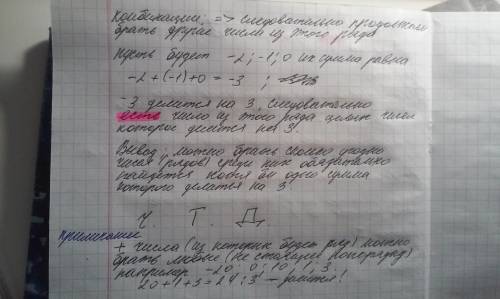 комбинации. => следовательно продолжаем
брать другие числа из этого ряда
Пусть будет -2; -1; 0 их сумма равна
-2 + (-1) + 0 = -3 ;
-3 делится на 3, следовательно
есть число из этого ряда целых чисел
которое делится на 3.
Вывод: можно брать сколько угодно
чисел (рядов) среди них обязательно
найдется хотя бы одно сумма
которого делится на 3
Ч. Т. Д
Примечание
+ числа (из которых будет ряд) можно
брать любые (не стоящие попорядку)
например -20; 0; 10; 1; 3.
20+1+3=24; 3 - делится!